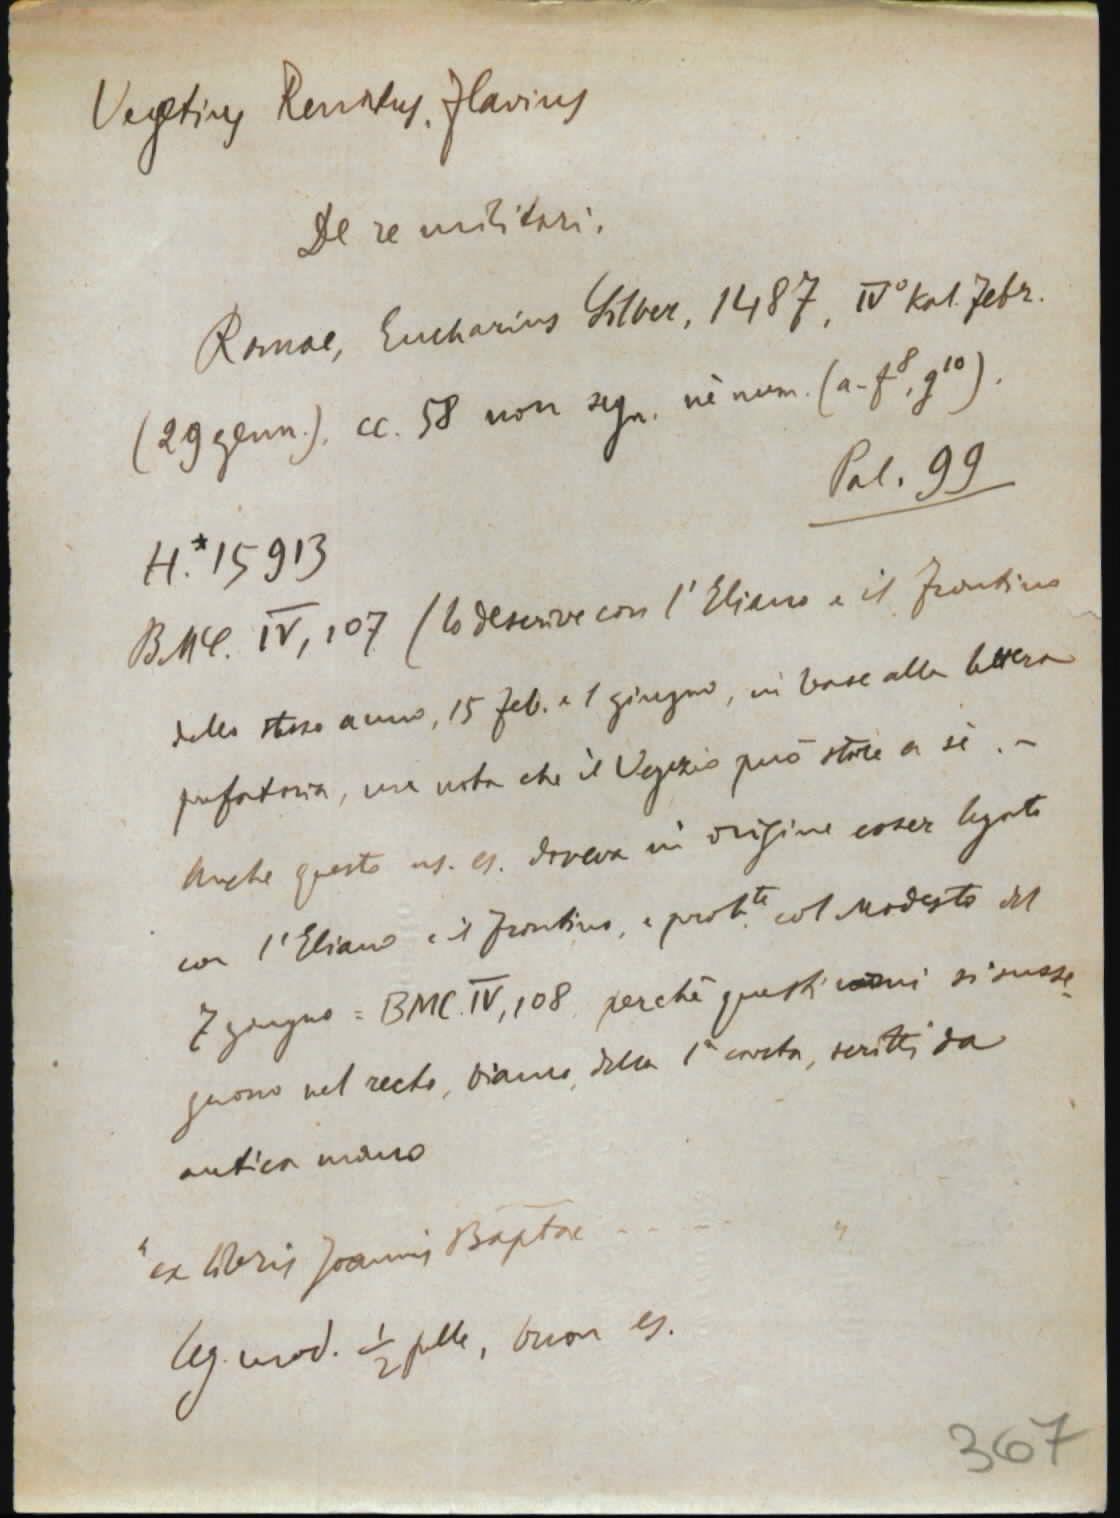 Vegetius Renatus, Flavius
De re militari.
Romae, Eucharius Silber, 1487, IV° Kal. Febr.
(29 genn.). cc. 58 non segn. nè num. (a-f⁸, g¹⁰).
Pal. 99
H.*15913
BMC. IV, 107 (lo descrive con l'Eliano e il Frontino
dello stesso anno, 15 feb. e 1 giugno, in base alla lettera
prefatoria, ma nota che il Vegezio può stare a sè. -
Anche questo ns. es. doveva in origine esser legato
con l'Eliano e il Frontino, e prob.te col Modesto del
7 giugno = BMC. IV, 108 perchè questi nomi si susse-
guono nel recto, bianco, della 1ª carta, scritti da
antica mano
"ex libris Joannis Baptae - - - - "
leg. mod. ½ pelle, buon es.
367